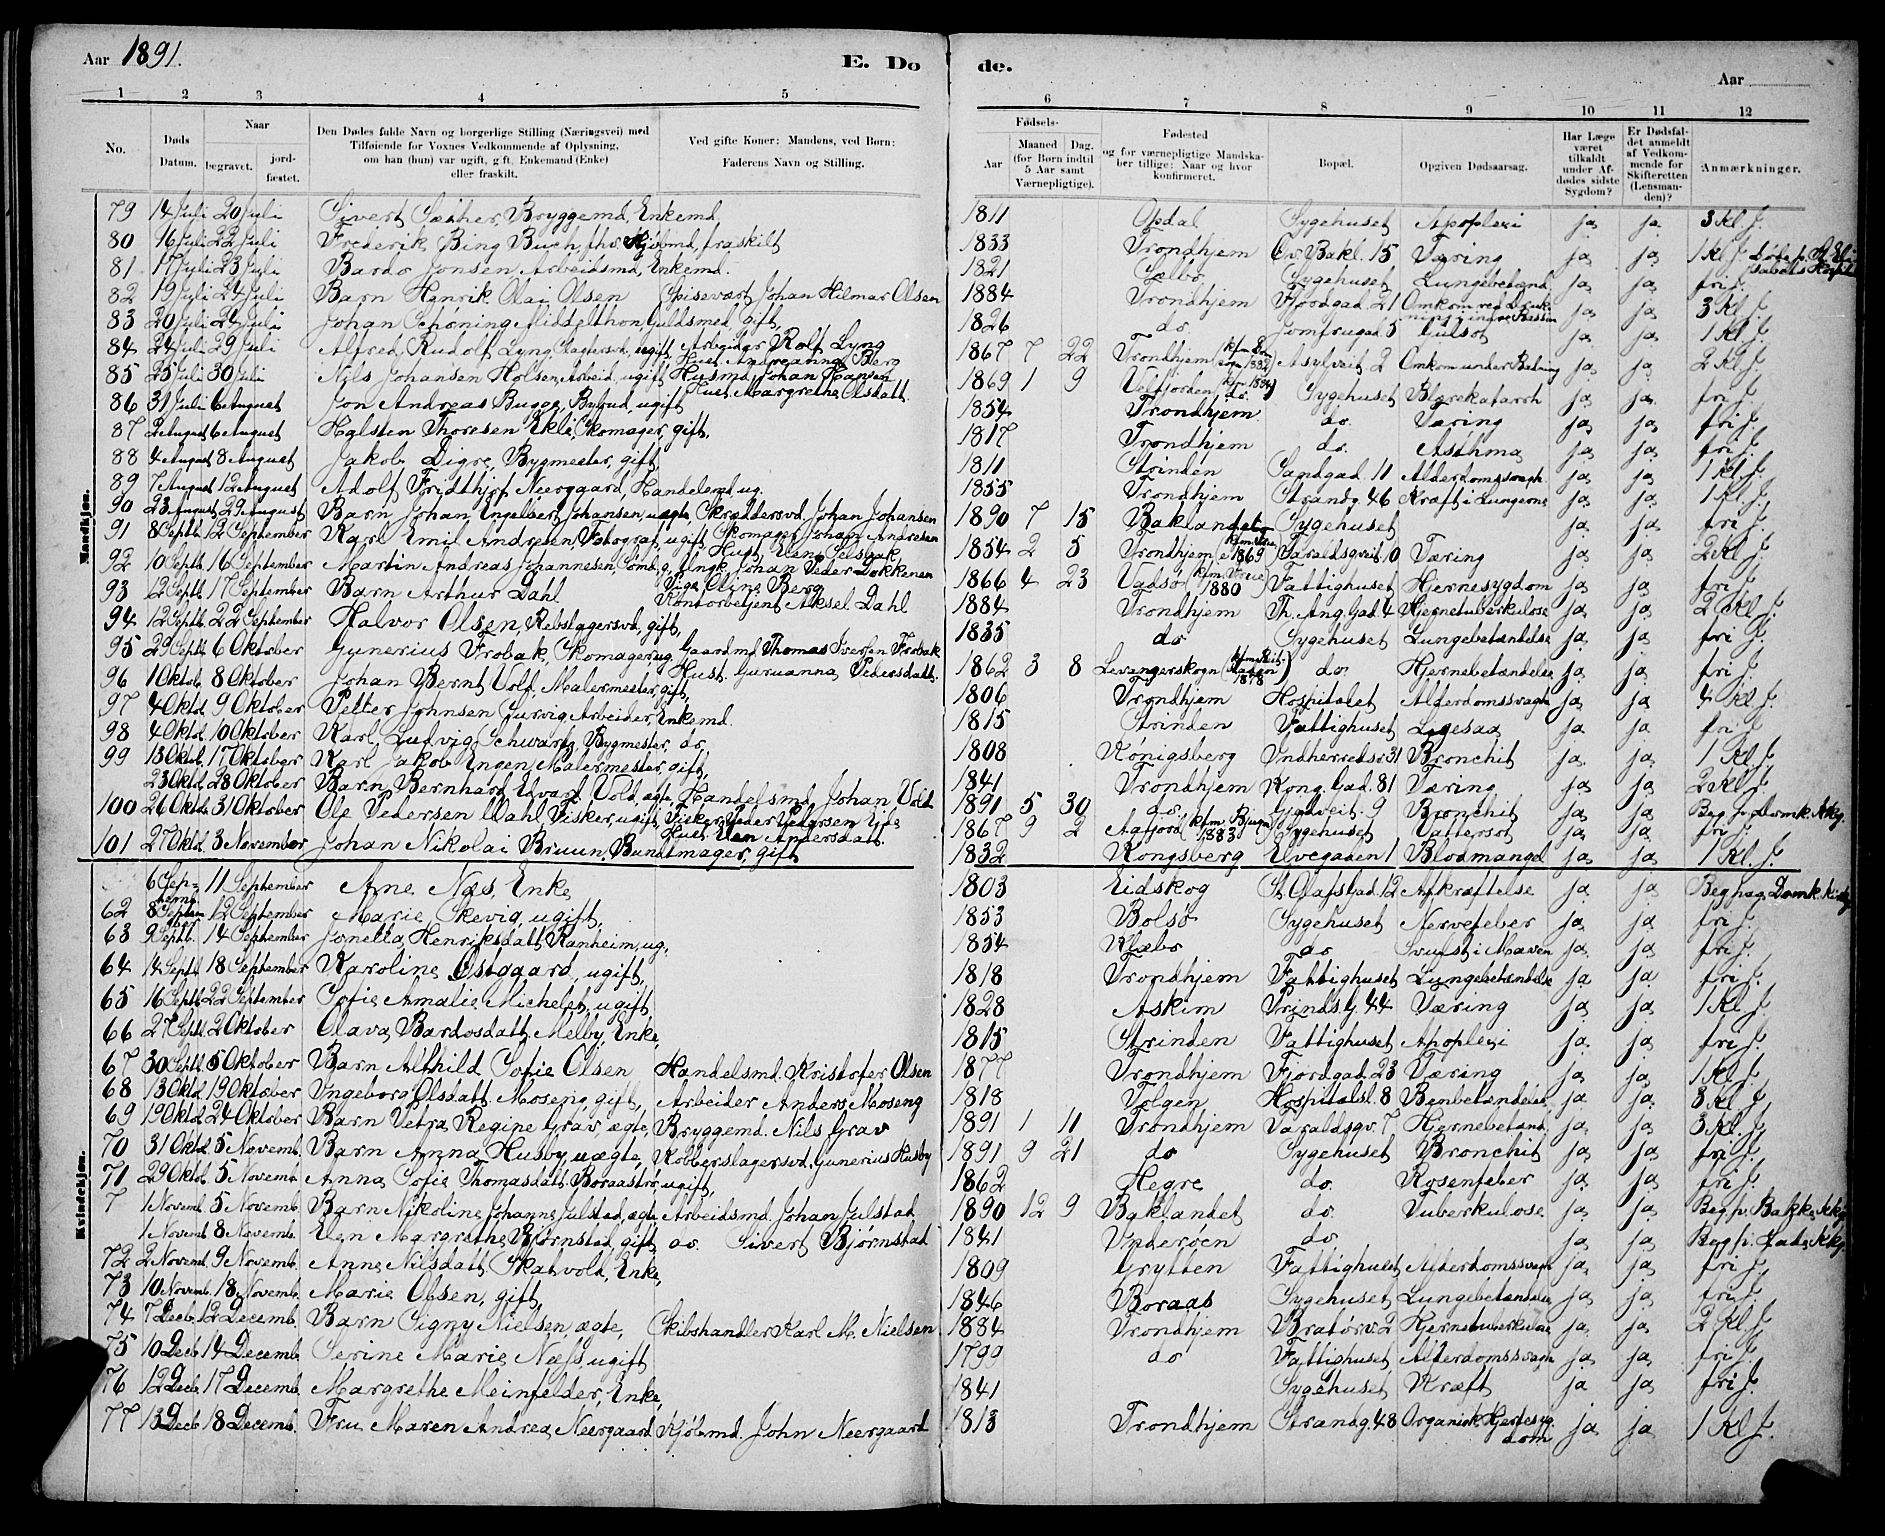 Aar 1891.
E. Døde.
Aar
1 2 3 4 5 6 7 8 9 10 11 12
No.
Døds Datum.
Naar
begravet.
jordfæstet.
Den Dødes fulde Navn og borgerlige Stilling (Næringsvei) med Tilføiende for Voxnes Vedkommende af Oplysning, om han (hun) var ugift, gift, Enkemand (Enke) eller fraskilt.
Ved gifte Koner: Mandens, ved Børn: Faderens Navn og Stilling.
Fødsels-
Aar
Maaned Dag. (for Børn indtil 5 Aar samt Værnepligtige).
Fødested og for værnepligtige Mandskaber tillige: Naar og hvor konfirmeret.
Bopæl.
Opgiven Dødsaarsag.
Har Læge været tilkaldt under Afdødes sidste Sygdom?
Er Dødsfaldet anmeldt af Vedkommende for Skifteretten (Lensmanden)?
Anmærkninger.
Mandkjøn.
79 14 Juli 20 Juli Sivert Sæther, Bryggemd, Enkemd. 1811 Opdal Sygehuset Apoplexi ja ja 3 Kl J.
80 16 Juli 22 Juli Frederik Bing Buch, fhv. Kjøbmd, fraskilt 1833 Trondhjem Øv. Bakl. 15 Tæring ja ja 1 Kl J.
81 17 Juli 23 Juli Bardo Jonsen Arbeidsmd, Enkemd. 1821 Sælbo Sygehuset Lungebetænd. ja ja fri J.
82 19 Juli 24 Juli Barn Henrik Olai Olsen Spisevært Johan Hilmar Olsen 1884 Trondhjem Fjordgad. 21 Omkom ved Drukning i indre Bassin ja ja 3 Kl J.
83 20 Juli 24 Juli Johan Schøning Middelthon, Guldsmed, gift, 1826 do. Jomfrugad 5 ja ja 1 Kl J.
84 24 Juli 29 Juli Alfred Rudolf Lyng, Slagtersvd, ugift Arbeider Rolf Lyng Hust. Andreanna Berg 1867 7 22 Trondhjem Asylveit 2 Omkom under Badning ja ja 2 Kl J.
85 25 Juli 30 Juli Nils Johansen Holsen, Arbeid, ugift Husmd. Johan Hansen Hust. Margrethe Olsdatt. 1869 1 9 Velfjorden Sygehuset Blærekatarrh ja ja fri J.
86 31 Juli 6 August Jon Andreas Bugge, Bybud, ugift 1854 Trondhjem do. Tæring ja ja fri J.
87 2 August 6 August Halsten Thoresen Ekle, Skomager, gift, 1817 Trondhjem do. Asthma ja ja fri J.
88 4 August 8 August Jakob Digre, Bygmester, gift, 1811 Strinden Sandgad. 11 Alderdomssvagh ja ja 1 Kl J.
89 7 August 12 August Adolf Fridthjof Neergaard, Handelsmd, ug. 1855 Trondhjem Strandg. 46 Kræft i Lungerne ja ja 1 Kl J.
90 23 August 29 August Barn Johan Engelbert Johansen, uægte, Skræddersvd Johan Johansen 1890 7 15 Baklandet Sygehuset ja ja fri J.
91 8 Septb. 12 September Karl Emil Andresen, Fotograf, ugift Skomager Johan Andresen 1854 2 5 Trondhjem Taraldsgveit. 0 Tæring ja ja 2 Kl J.
92 10 Septb. 16 September Martin Andreas Johannesen, Ungk. Johan Peder Dokkenen Pige Eline Berg 1866 4 23 Vadsø Fattighuset Hjernesygdom ja ja fri J.
93 12 Septb. 17 September Barn Arthur Dahl Kontorbetjent Aksel Dahl 1884 Trondhjem Th. Ang. Gad. 4 Hjernetuberkulose ja ja 2 Kl J.
94 12 Septb. 22 September Halvor Olsen, Rebslagersvd, gift, 1835 do. Sygehuset Lungebetændelse ja ja fri J.
95 29 Septb. 6 Oktober Gunerius Frobak, Skomager, ug. Gaardmd. Thomas Iversen Frobak Hust. Guruanna Pedersdatt. 1862 3 8 Levangerskogn do. Hjernebetændelse ja ja fri J.
96 1 Oktob. 8 Oktober Johan Bernt Vold, Malermester, gift, 1806 Trondhjem Hospitalet Alderdomssvagh ja ja 4 Kl J.
97 4 Oktob. 9 Oktober Petter Johnsen Gurvig, Arbeider, Enkemd. 1815 Strinden Fattighuset ja ja fri J.
98 4 Oktob. 10 Oktober Karl Ludvig Schwartz, Bygmester, do. 1808 Kønigsberg Indherredsv 31 Bronchit ja ja 1 Kl J.
99 13 Oktob. 17 Oktober Karl Jakob Engen, Malermester, gift, 1841 Trondhjem Kong. Gad. 81 Tæring ja ja 2 Kl J.
23 Oktob. 28 Oktober Barn Bernhard Edvard Vold, ægte, Handelsmd. Johan Vold 1891 5 30 do. 9 Bronchit ja ja Beg. p. Domk. Kkg.
100 26 Oktob. 31 Oktober Ole Pedersen Dahl, Fisker, ugift, Fisker Peder Pedersen Hust. Elen Andersdatt. 1867 9 2 Aafjord Sygehuset Vattersot ja ja fri J.
101 27 Oktob. 3 November Johan Nikolai Bruun, Buntmager, gift 1832 Kongsberg Elvegaden 1 Blodmangel ja ja 1 Kl. J.
Kvindekjøn.
6 September 11 September Ane Næs, Enke 1803 Eidskog St. Olafsgad. 12 Afkræftelse ja ja Beg. paa Domk. Kirkg
62 8 September 12 September Marie Skevig, ugift, 1853 Bolsø Sygehuset Nervefeber ja ja fri J.
63 9 Septb. 14 September Jonetta Henriksdatt. Ranheim, ug. 1854 Klæbo do Svulst i Maven ja ja fri J.
64 14 Septb. 18 September Karoline Østgaard, ugift, 1818 Trondhjem Fattighuset Lungebetændelse ja ja fri J.
65 16 Septb. 22 September Sofie Amalie Michelet, ugift, 1828 Askim Prindsg. 44 Tæring ja ja 1 Kl J.
66 27 Septb. 2 Oktober Olava Bardosdatt. Melby, Enke, 1815 Strinden Fattighuset Apoplexi ja ja fri J.
67 30 Septb. 5 Oktober Barn Althild Sofie Olsen Handelsmd. Kristofer Olsen 1877 Trondhjem Fjordgad. 23 Tæring ja ja 1 Kl J.
68 13 Oktob. 19 Oktober Ingeborg Olsdatt. Moseng, gift, Arbeider Anders Moseng 1818 Tolgen Hospitalsl. 8 Benbetændelse ja ja 3 Kl J.
69 19 Oktob. 24 Oktober Barn Petra Regine Grav, ægte, Bryggemd. Nils Grav 1891 1 11 Trondhjem Taraldsgv. 7 Hjernebetænd. ja ja 3 Kl. J.
70 31 Oktob. 5 Novemb. Barn Anna Husby, uægte, Kobberslagersvd. Gunerius Husby 1891 9 21 do Sygehuset Bronchit ja ja fri J.
71 29 Oktob. 5 Novemb. Anna Sofie Thomasdatt. Boraastrø, ugift, 1862 Hegre do. Rosenfeber ja ja fri J.
7 1 Novemb. 5 Novemb. Barn Nikoline Johanne Julstad, ægte Arbeidsmd. Johan Julstad 1890 12 9 Baklandet do. Tuberkulose ja ja Beg. p. Bakke Kkg.
1 Novemb. 8 Novemb. Elen Margrethe Bjørnstad, gift, do. Sivert Bjørnstad 1841 Ynderøen do. ja ja Beg. p. Lade Kkg.
72 2 Novemb. 9 Novemb. Anne Nilsdatt. Skatvold, Enke, 1809 Grytten Fattighuset Alderdomssvagh ja ja fri J.
73 10 Novemb. 18 Novemb. Marie Olsen, gift, 1846 Boraas Sygehuset Lungebetændelse ja ja fri J.
74 7 Decb. 12 Decemb. Barn Signy Nielsen, ægte, Skibshandler Karl M. Nielsen 1884 Trondhjem Bratørv. 2 Hjernetuberkulose ja ja 2 Kl J.
75 10 Decb. 14 Decemb. Serine Marie Næss, ugift 1799 do Fattighuset Alderdomssvagh ja ja fri J.
76 12 Decb. 17 Decemb. Margrethe Meinfelder, Enke, 1841 Sygehuset Kræft ja ja fri J.
77 13 Decb. 18 Decemb. Fru Maren Andrea Neergaard Kjøbmd. John Neergaard 1813 Trondhjem Strandg. 48 Organisk Hjertesygdom ja ja 1 Kl J.